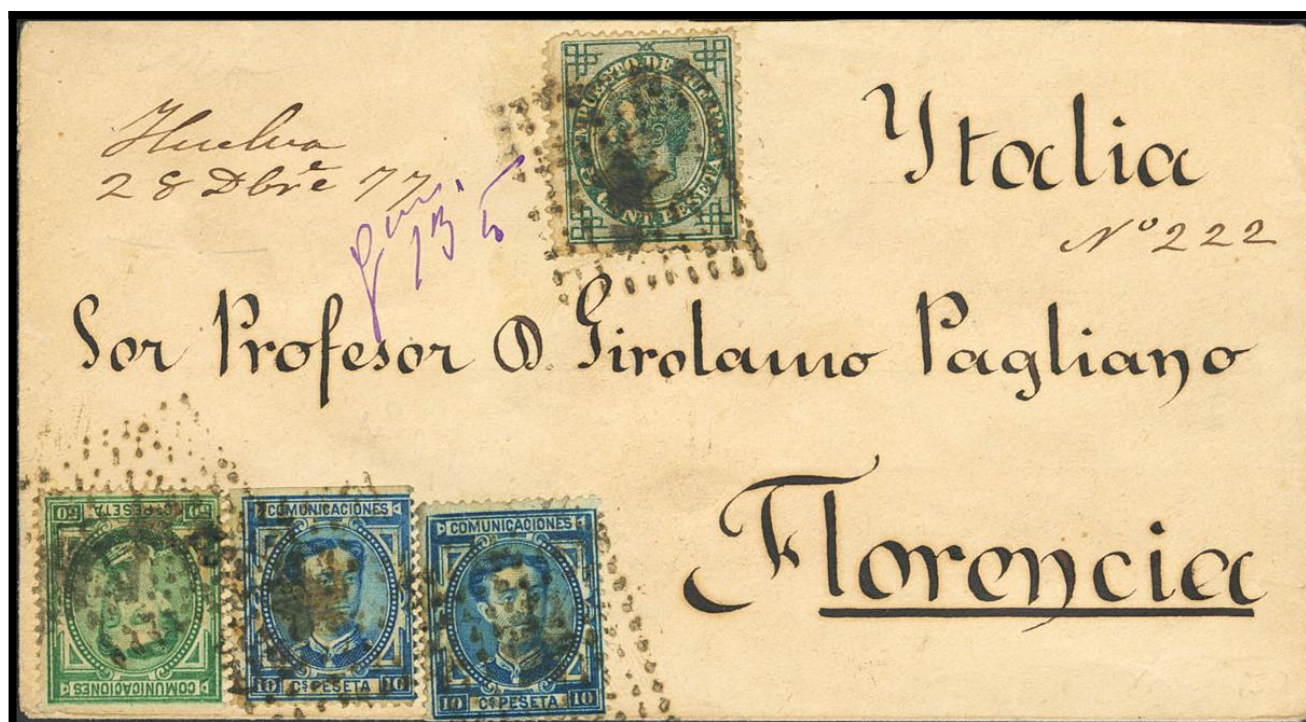 Huelva
28 Dbrẽ 77
IMPUESTO DE GUERRA
5 CENT. PESETA
Ytalia
Nº 222
Sor Profesor D. Girolamo Pagliano
Florencia
50 CS PESETA 50
COMUNICACIONES
COMUNICACIONES
10 CS PESETA 10
COMUNICACIONES
10 CS PESETA 10